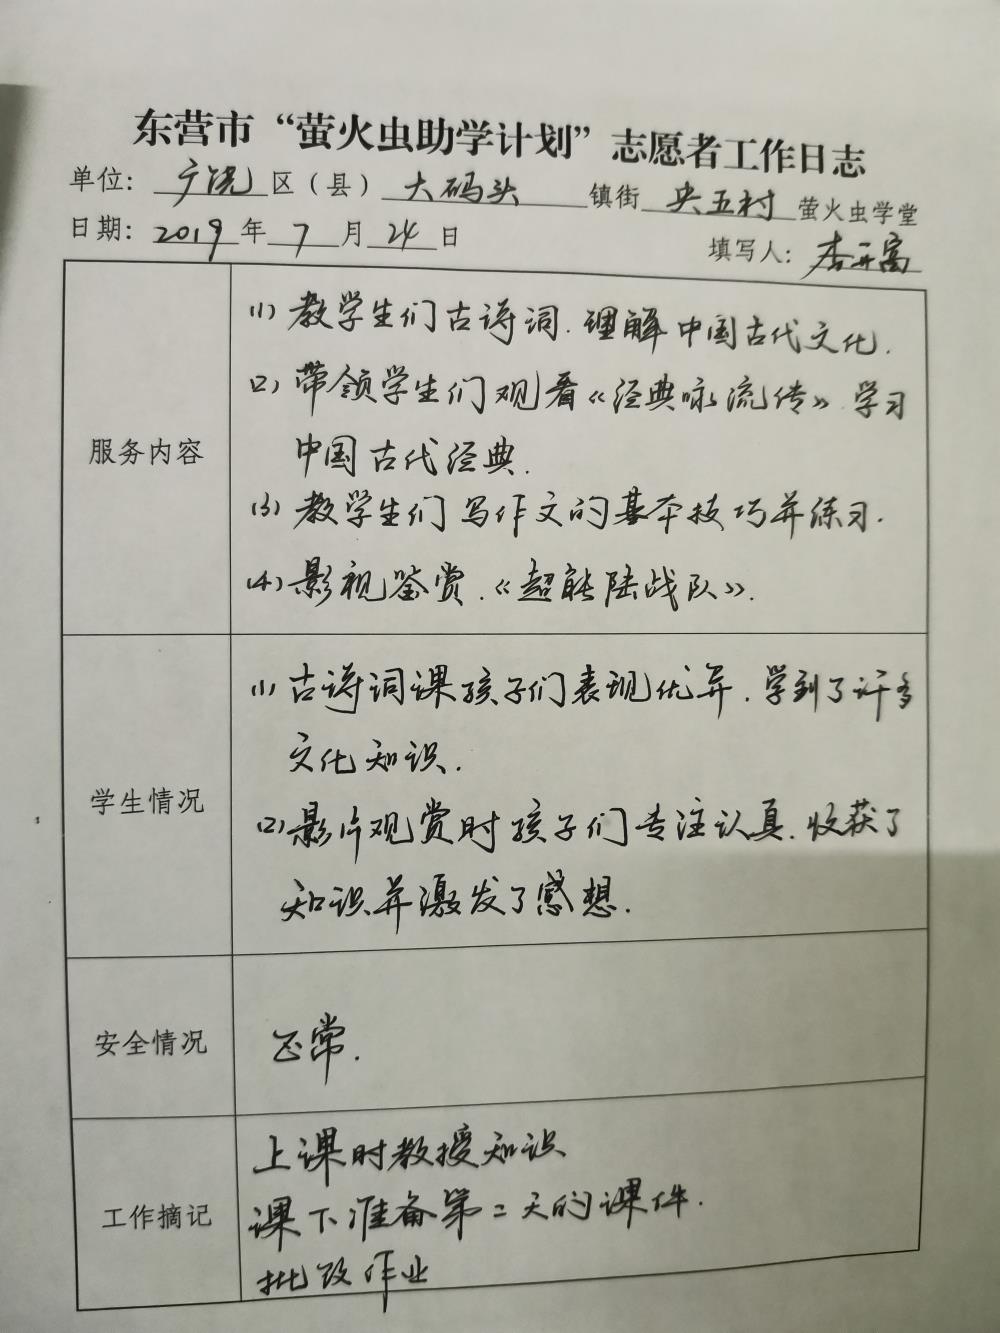 东营市“萤火虫助学计划”志愿者工作日志
单位：广饶区（县）大码头镇街央五村萤火虫学堂
日期：2019年7月24日
填写人：李开富
服务内容
(1) 教学生们古诗词.理解中国古代文化.
(2) 带领学生们观看《经典咏流传》.学习
中国古代经典.
(3) 教学生们写作文的基本技巧并练习.
(4) 影视鉴赏.《超能陆战队》.
学生情况
(1) 古诗词课孩子们表现优异.学到了许多
文化知识.
(2) 影片观赏时孩子们专注认真.收获了
知识并激发了感想.
安全情况
正常.
工作摘记
上课时教授知识
课下准备第二天的课件.
批改作业